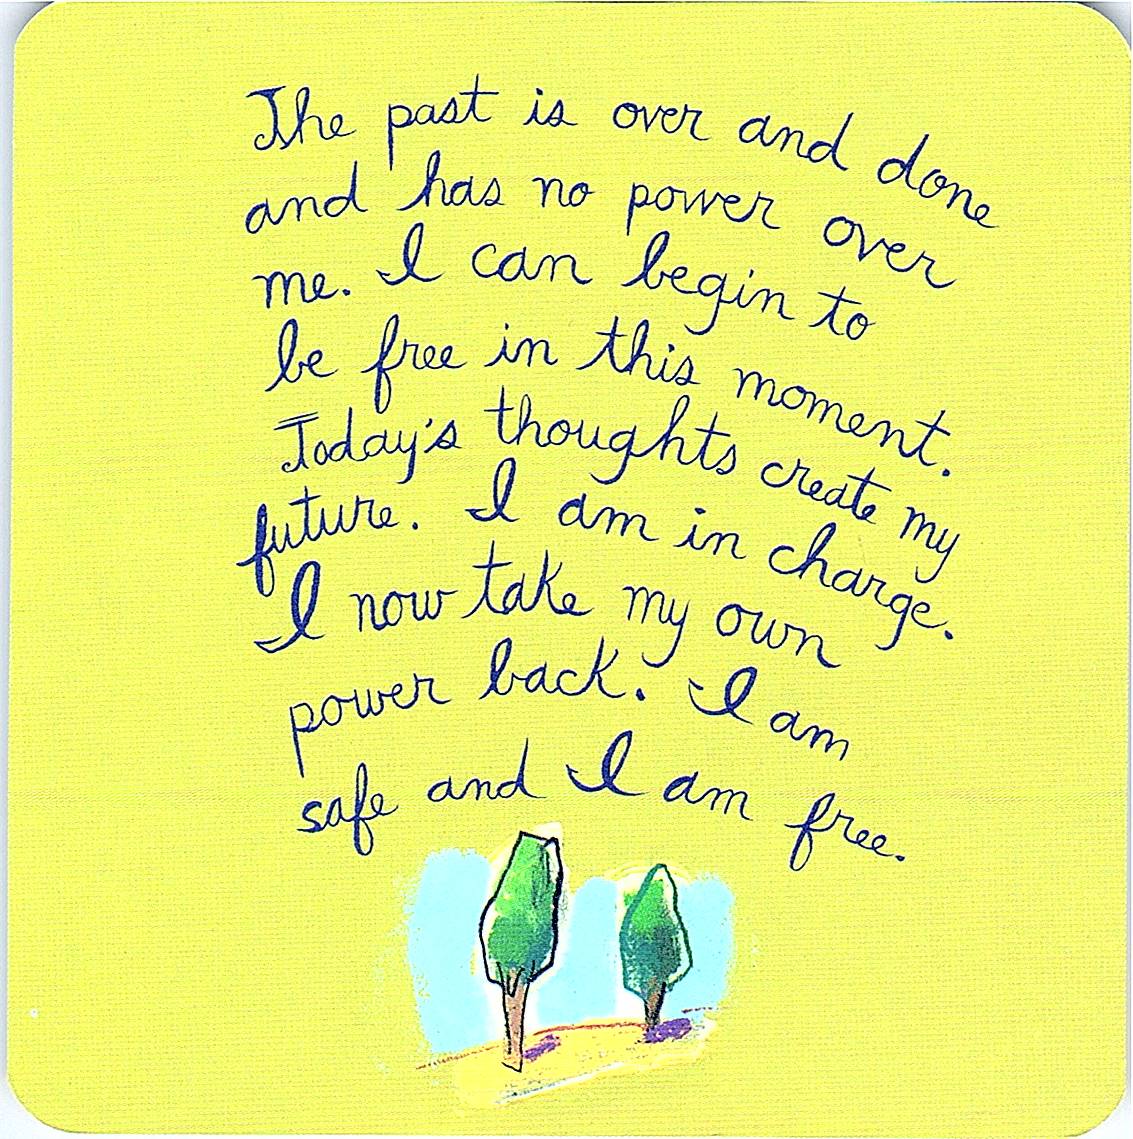 The past is over and done
and has no power over
me. I can begin to
be free in this moment.
Today's thoughts create my
future. I am in charge.
I now take my own
power back. I am
safe and I am free.